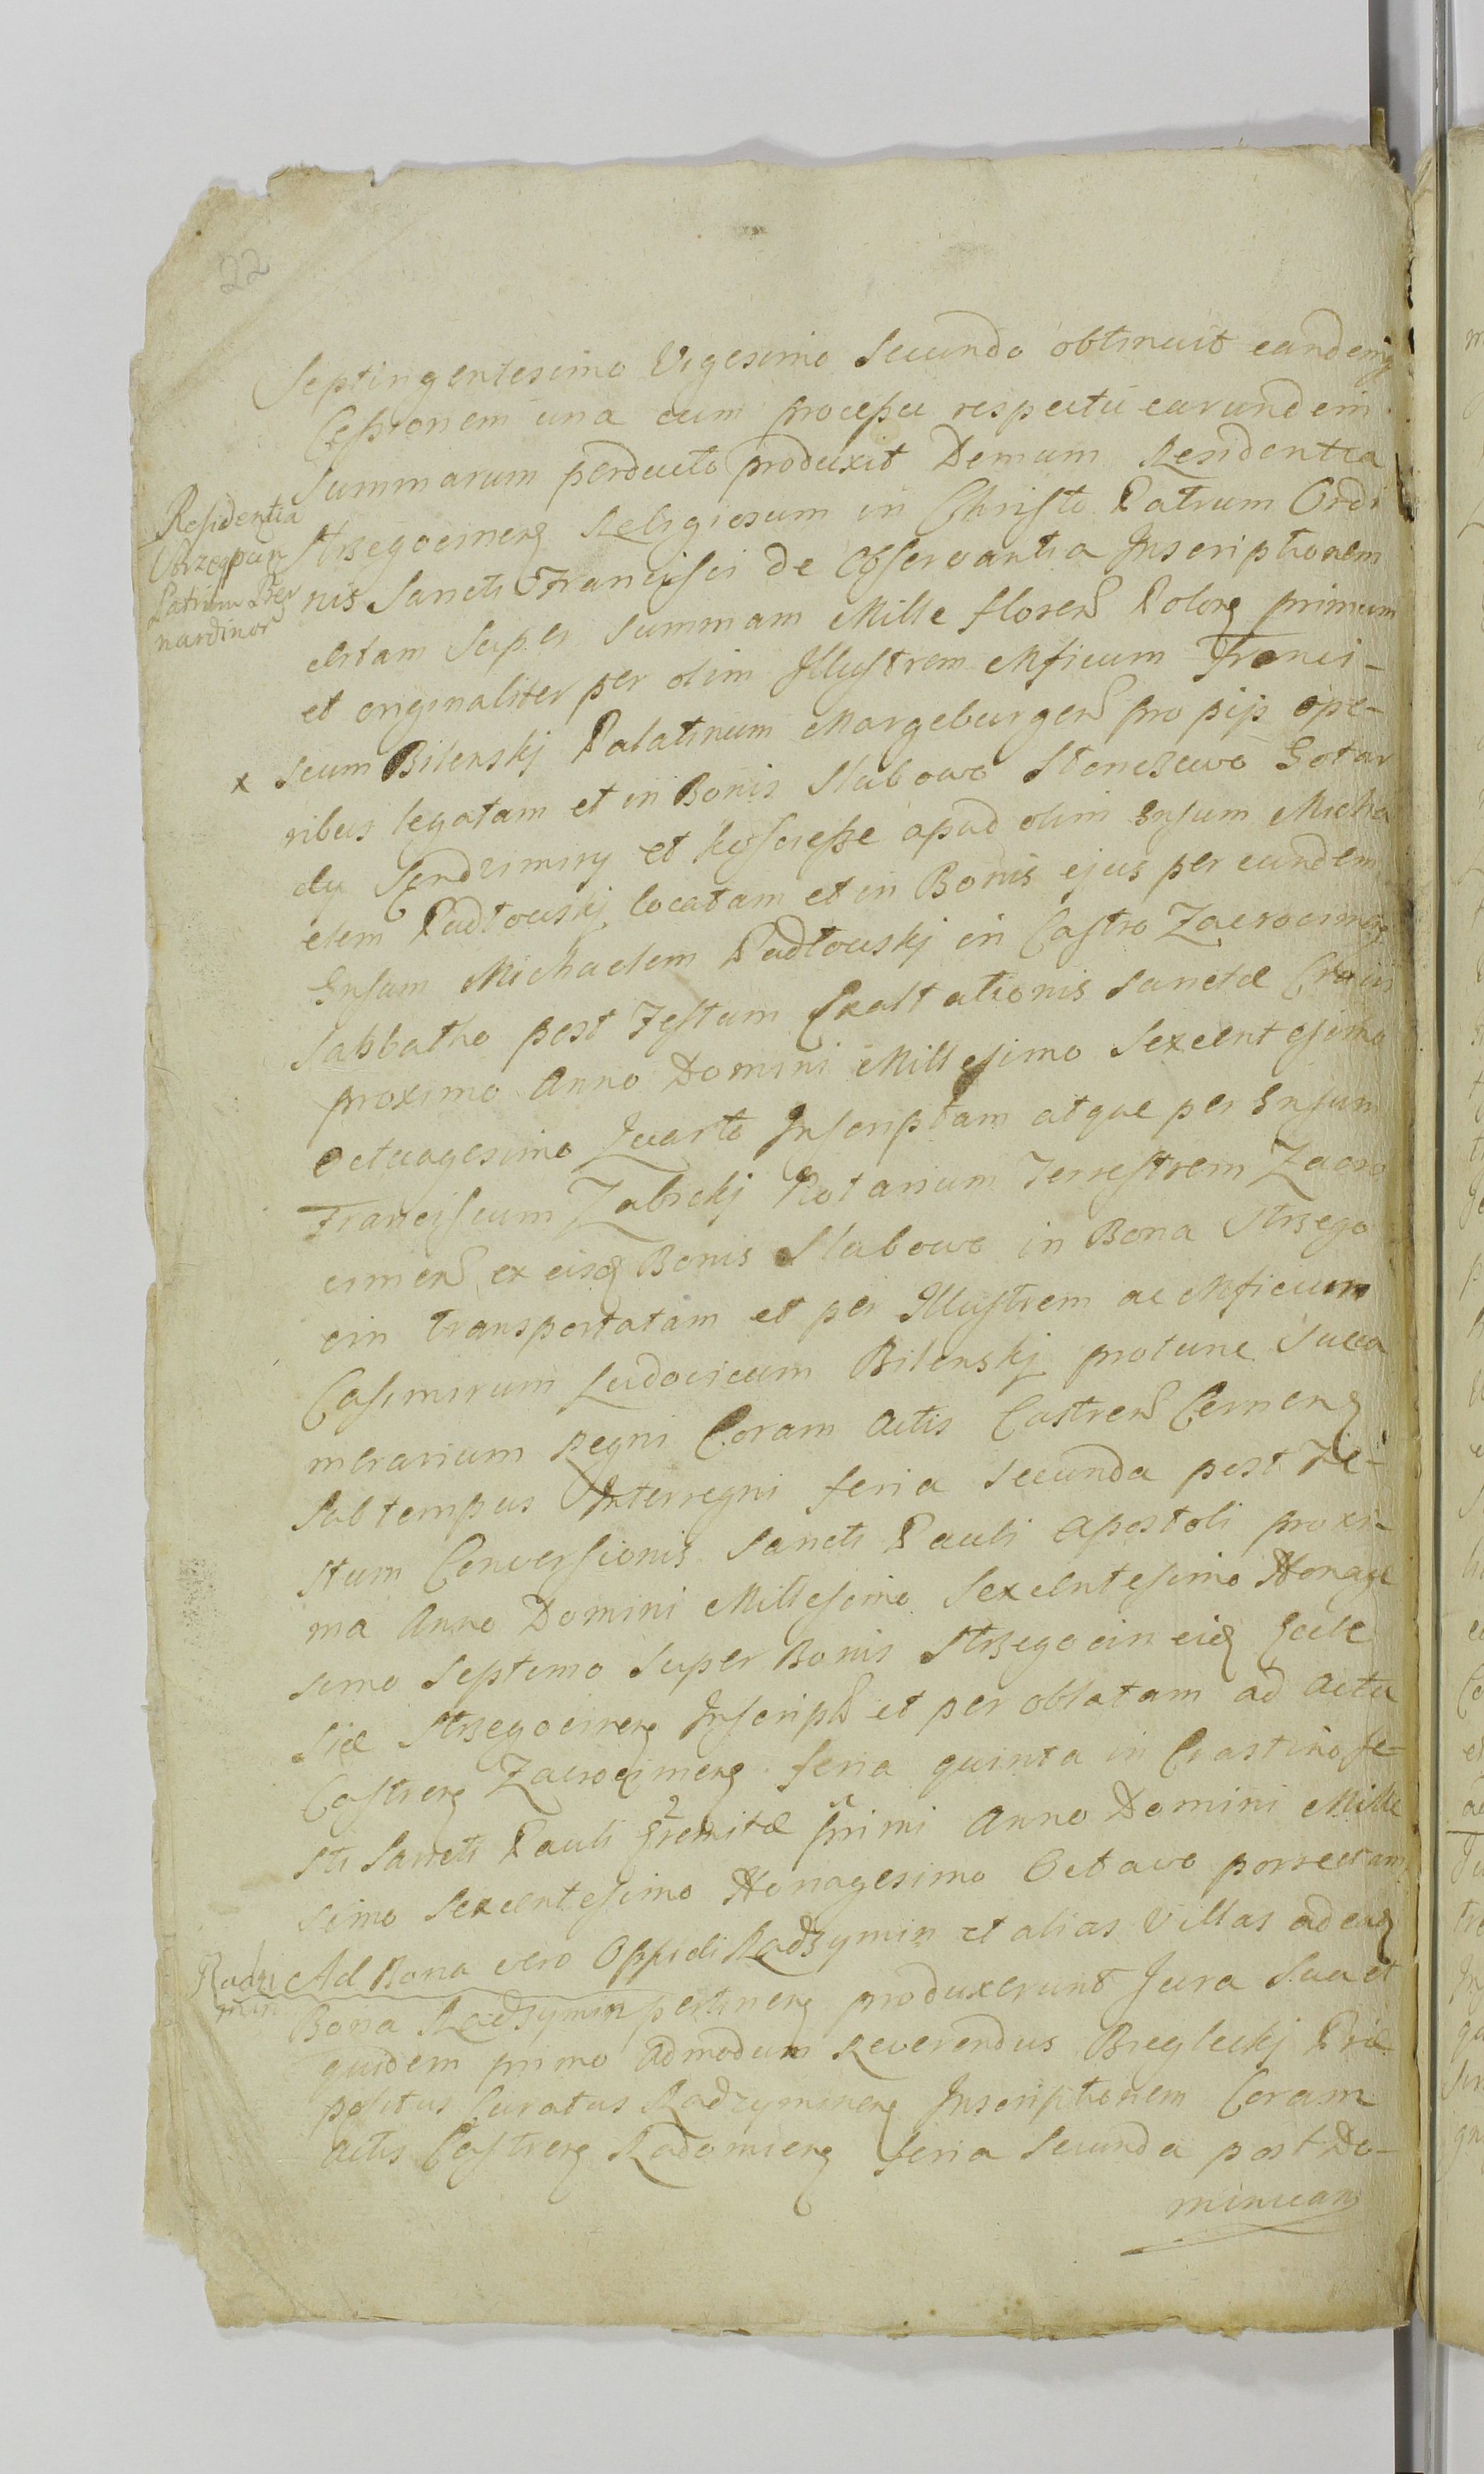 22
Septingentesimo Vigesimo Secundo obtinuit eandemq
Cessionem una cum processu respectu earundem
Summarum perducto produxit Demum Residentia
Residentia
Strzegocinens Religiosum in Christo Patrum Ordi
Patrum Ber
nardinor
nis Sancti Francisci de Observantia Inscriptionem
Super Summam Mille floren Polon primum
et originaliter per olim Illustrem Mficum Franci-
x scum Bilenskj Palatinum Margeburgen pro pijs ope-
ribus legatam et in Bonis Slubowo Gotar
dy et apud olim Gnsum Micha
elem Padlouskj locatam et in Bonis ejus per eundem
Gnsum Michaelem Padlouskj in Castro Zacrocimen
Sabbatho post Festum Exaltationis Sanctæ Crucis
proximo Anno Domini Millesimo Sexcentesimo
Octuagesimo Quarto Inscriptam atque per Gnsum
Franciscum Zabickj Notarium Terrestrem Zacro
cimen ex eisd Bonis Slubowo in Bona Strzego
cin transportatam et per Illustrem ac Mficum
Casimirum Ludovicum Bilenskj protunc Succa
merarium Regni Coram Actis Castren Cernen
Sub tempus Interregni feria Secunda post Fe-
stum Conversionis Sancti Pauli Apostoli proxi-
ma Anno Domini Millesimo Sexcentesimo Nonage
simo Septimo Super Bonis Strzegocin eid Eccle
siæ Strzegocinen Inscript et per oblatam ad Acta
Castren Zacrocimen feria quinta in Crastino fe-
sti Sancti Pauli 2 Eremitæ 1 primi Anno Domini Mille
simo Sexcentesimo Nonagesimo Octavo porrectam
Radzy
min
Ad Bona vero Oppidi Radzymin et alias Villas ad ead
Bona Radzymin pertinen produxerunt Jura Sua et
quidem primo Admodum Reverendus Breglickj Præ
positus Curatus Radzyminen Inscriptionem Coram
Actis Castren Radomien feria Secunda post Do-
minicam